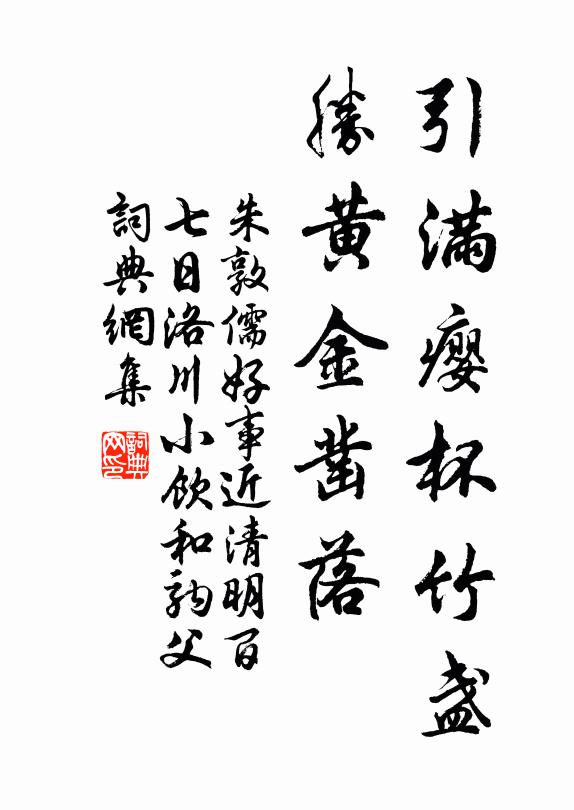 引滿癭杯竹盞
勝黃金鑿落
朱敦儒好事近清明百
七日洛川小飲和駒父
詞典網集
詞典
网印